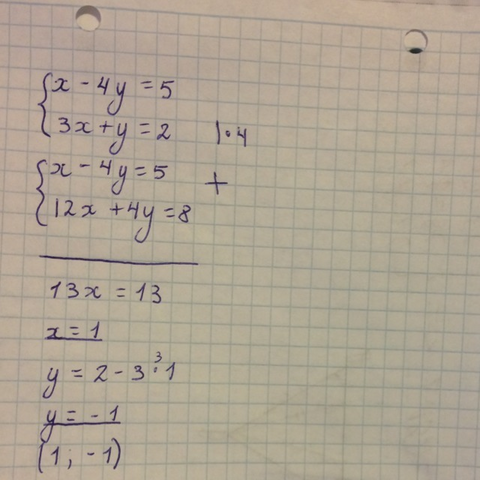 x - 4y = 5
3x + y = 2 | · 4
x - 4y = 5 +
12x + 4y = 8
13x = 13
x = 1
y = 2 - 3 · 1
y = - 1
(1; -1)